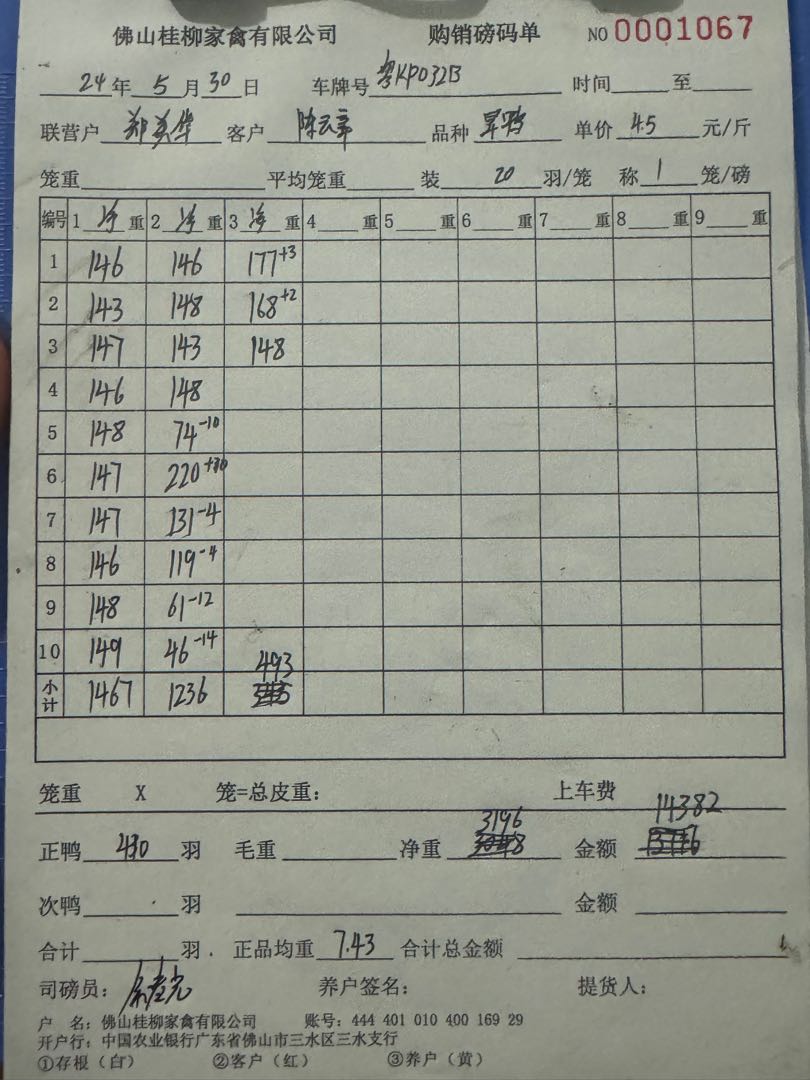 佛山桂柳家禽有限公司 购销磅码单 NO 0001067
24年 5月30日 车牌号 粤KP032B 时间 至
联营户 郑美华 客户 陈云章 品种 旱鸭 单价 4.5 元/斤
笼重 平均笼重 装 20 羽/笼 称 1 笼/磅
编号 1 净 重 2 净 重 3 净 重 4 重 5 重 6 重 7 重 8 重 9 重
1 146 146 177+3
2 143 148 168+2
3 147 143 148
4 146 148
5 148 74-10
6 147 220+30
7 147 131-4
8 146 119-4
9 148 61-12
10 149 46-14
小计 1467 1236 493
笼重 X 笼=总皮重: 上车费
正鸭 430 羽 毛重 净重 3196 金额 14382
次鸭 羽 金额
合计 羽. 正品均重 7.43 合计总金额
司磅员: 养户签名: 提货人:
户 名: 佛山桂柳家禽有限公司 账号: 444 401 010 400 169 29
开户行: 中国农业银行广东省佛山市三水区三水支行
①存根(白) ②客户(红) ③养户(黄)